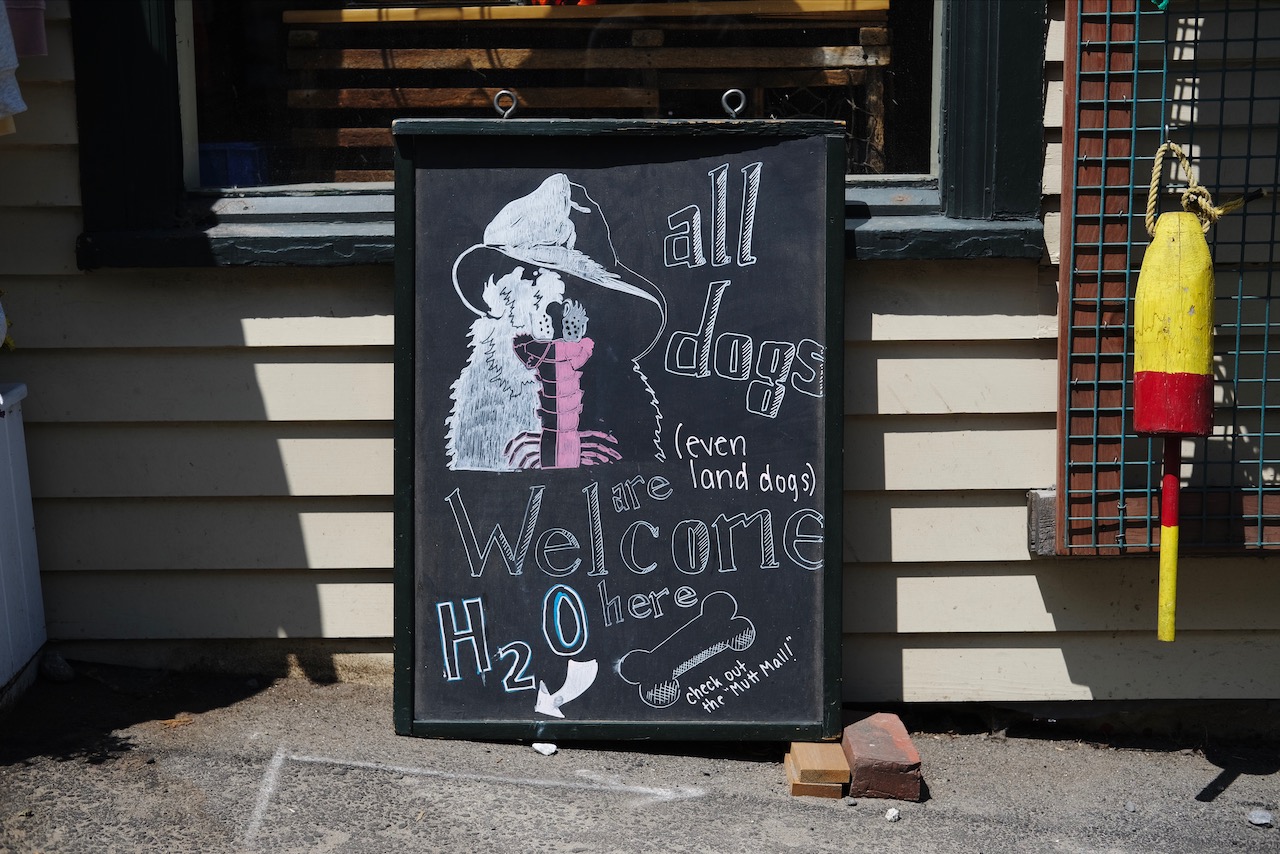 all
dogs
(even
land dogs)
are
Welcome
here
H2O
check out
the "Mutt Mall!"